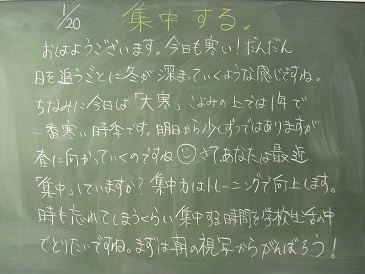 1/20
集中する。
おはようございます。今日も寒い！だんだん
日を追うごとに冬が深まっていくような感じですね。
ちなみに今日は「大寒」こよみの上では1年で
一番寒い時季です。明日から少しずつではありますが
春に向かっていくのですね☺さて、あなたは最近
「集中」していますか？集中力はトレーニングで向上します。
時も忘れてしまうくらい集中する時間を学校生活の中
でとりたいですね。まずは朝の視写からがんばろう！